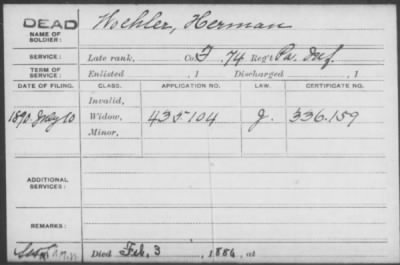 DEAD
Wochler, Herman
NAME OF SOLDIER:
SERVICE: Late rank, Co. F, 74 Reg't Pa. Inf.
TERM OF SERVICE: Enlisted , 1 Discharged , 1
DATE OF FILING. CLASS. APPLICATION NO. LAW. CERTIFICATE NO.
Invalid,
1890. July 10 Widow, 435104 J. 336.159
Minor,
ADDITIONAL SERVICES:
REMARKS:
Died Feb. 3 , 1886, at